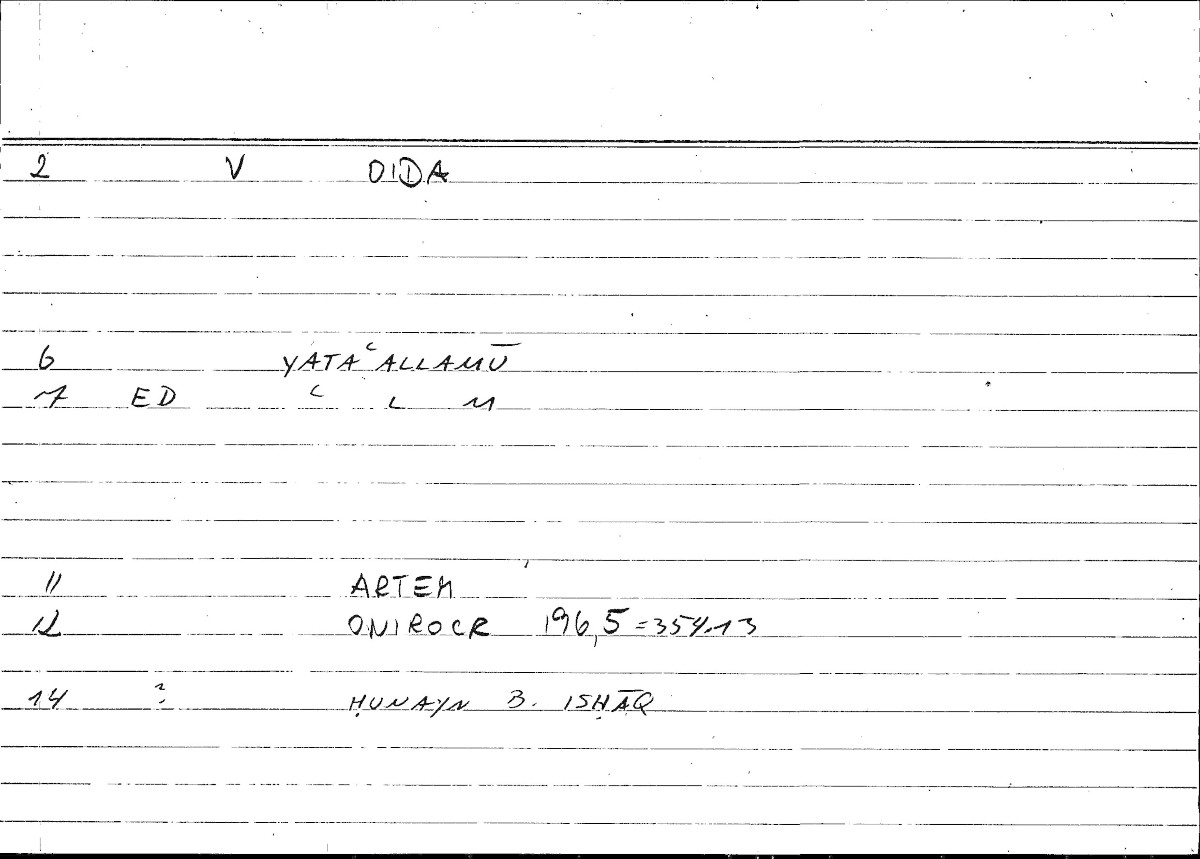 2 V OIDA
6 YATAʿALLAMŪ
7 ED ʿ L M
11 ARTEM
12 ONIROCR 196,5=354.13
14 ? ḤUNAYN B. ISḤĀQ